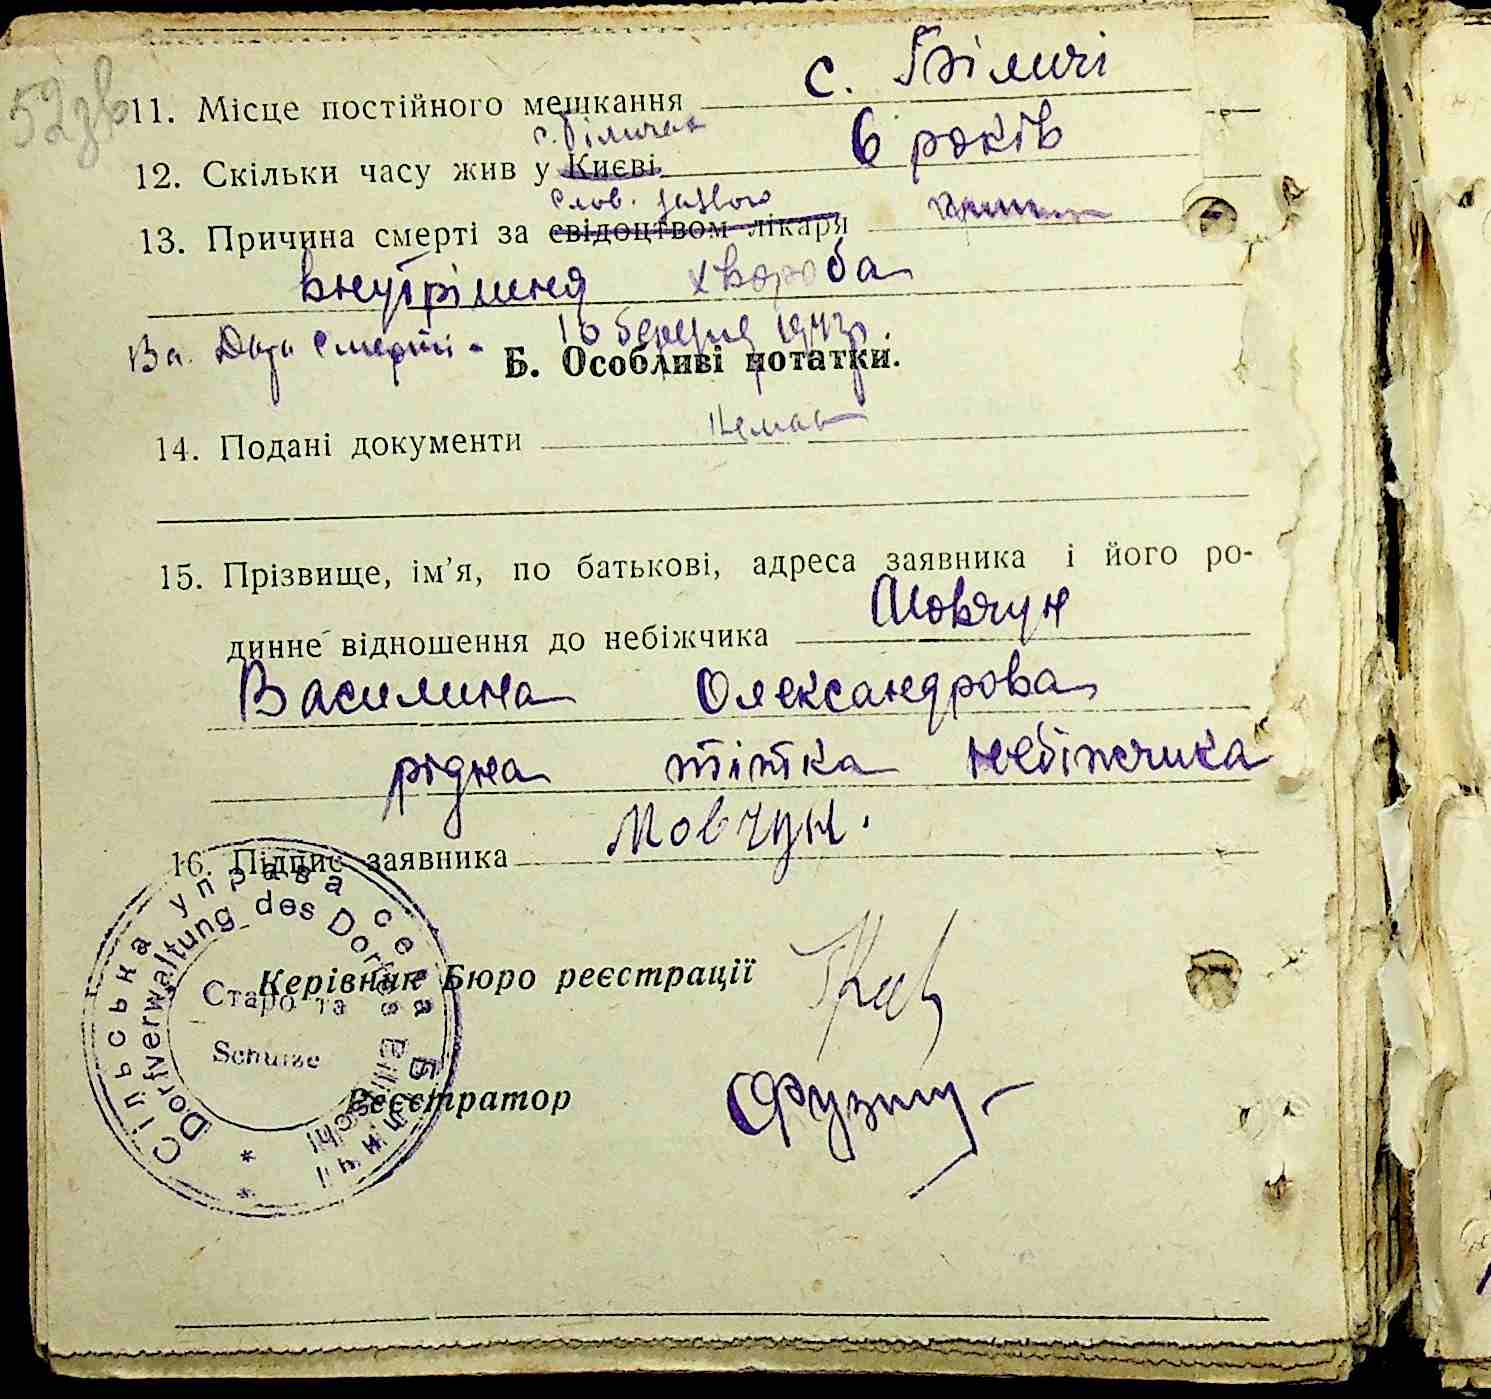 52зв
11. Місце постійного мешкання с. Біличі
с. Біличах
12. Скільки часу жив у Києві 6 років
Слов. заявою
13. Причина смерті за свідоцтвом лікаря
внутрішня хвороба
Дата смерті - 16 березня 1943р.
Б. Особливі нотатки.
14. Подані документи Немає
15. Прізвище, ім'я, по батькові, адреса заявника і його ро-
динне відношення до небіжчика Мовчун
Василина Олександрова
рідна тітка небіжчика
16. Підпис заявника Мовчун.
Сільська управа села Біличі
Dorfverwaltung des Dorfes Bilitschi
Староста
Schulze
Керівник Бюро реєстрації
Реєстратор